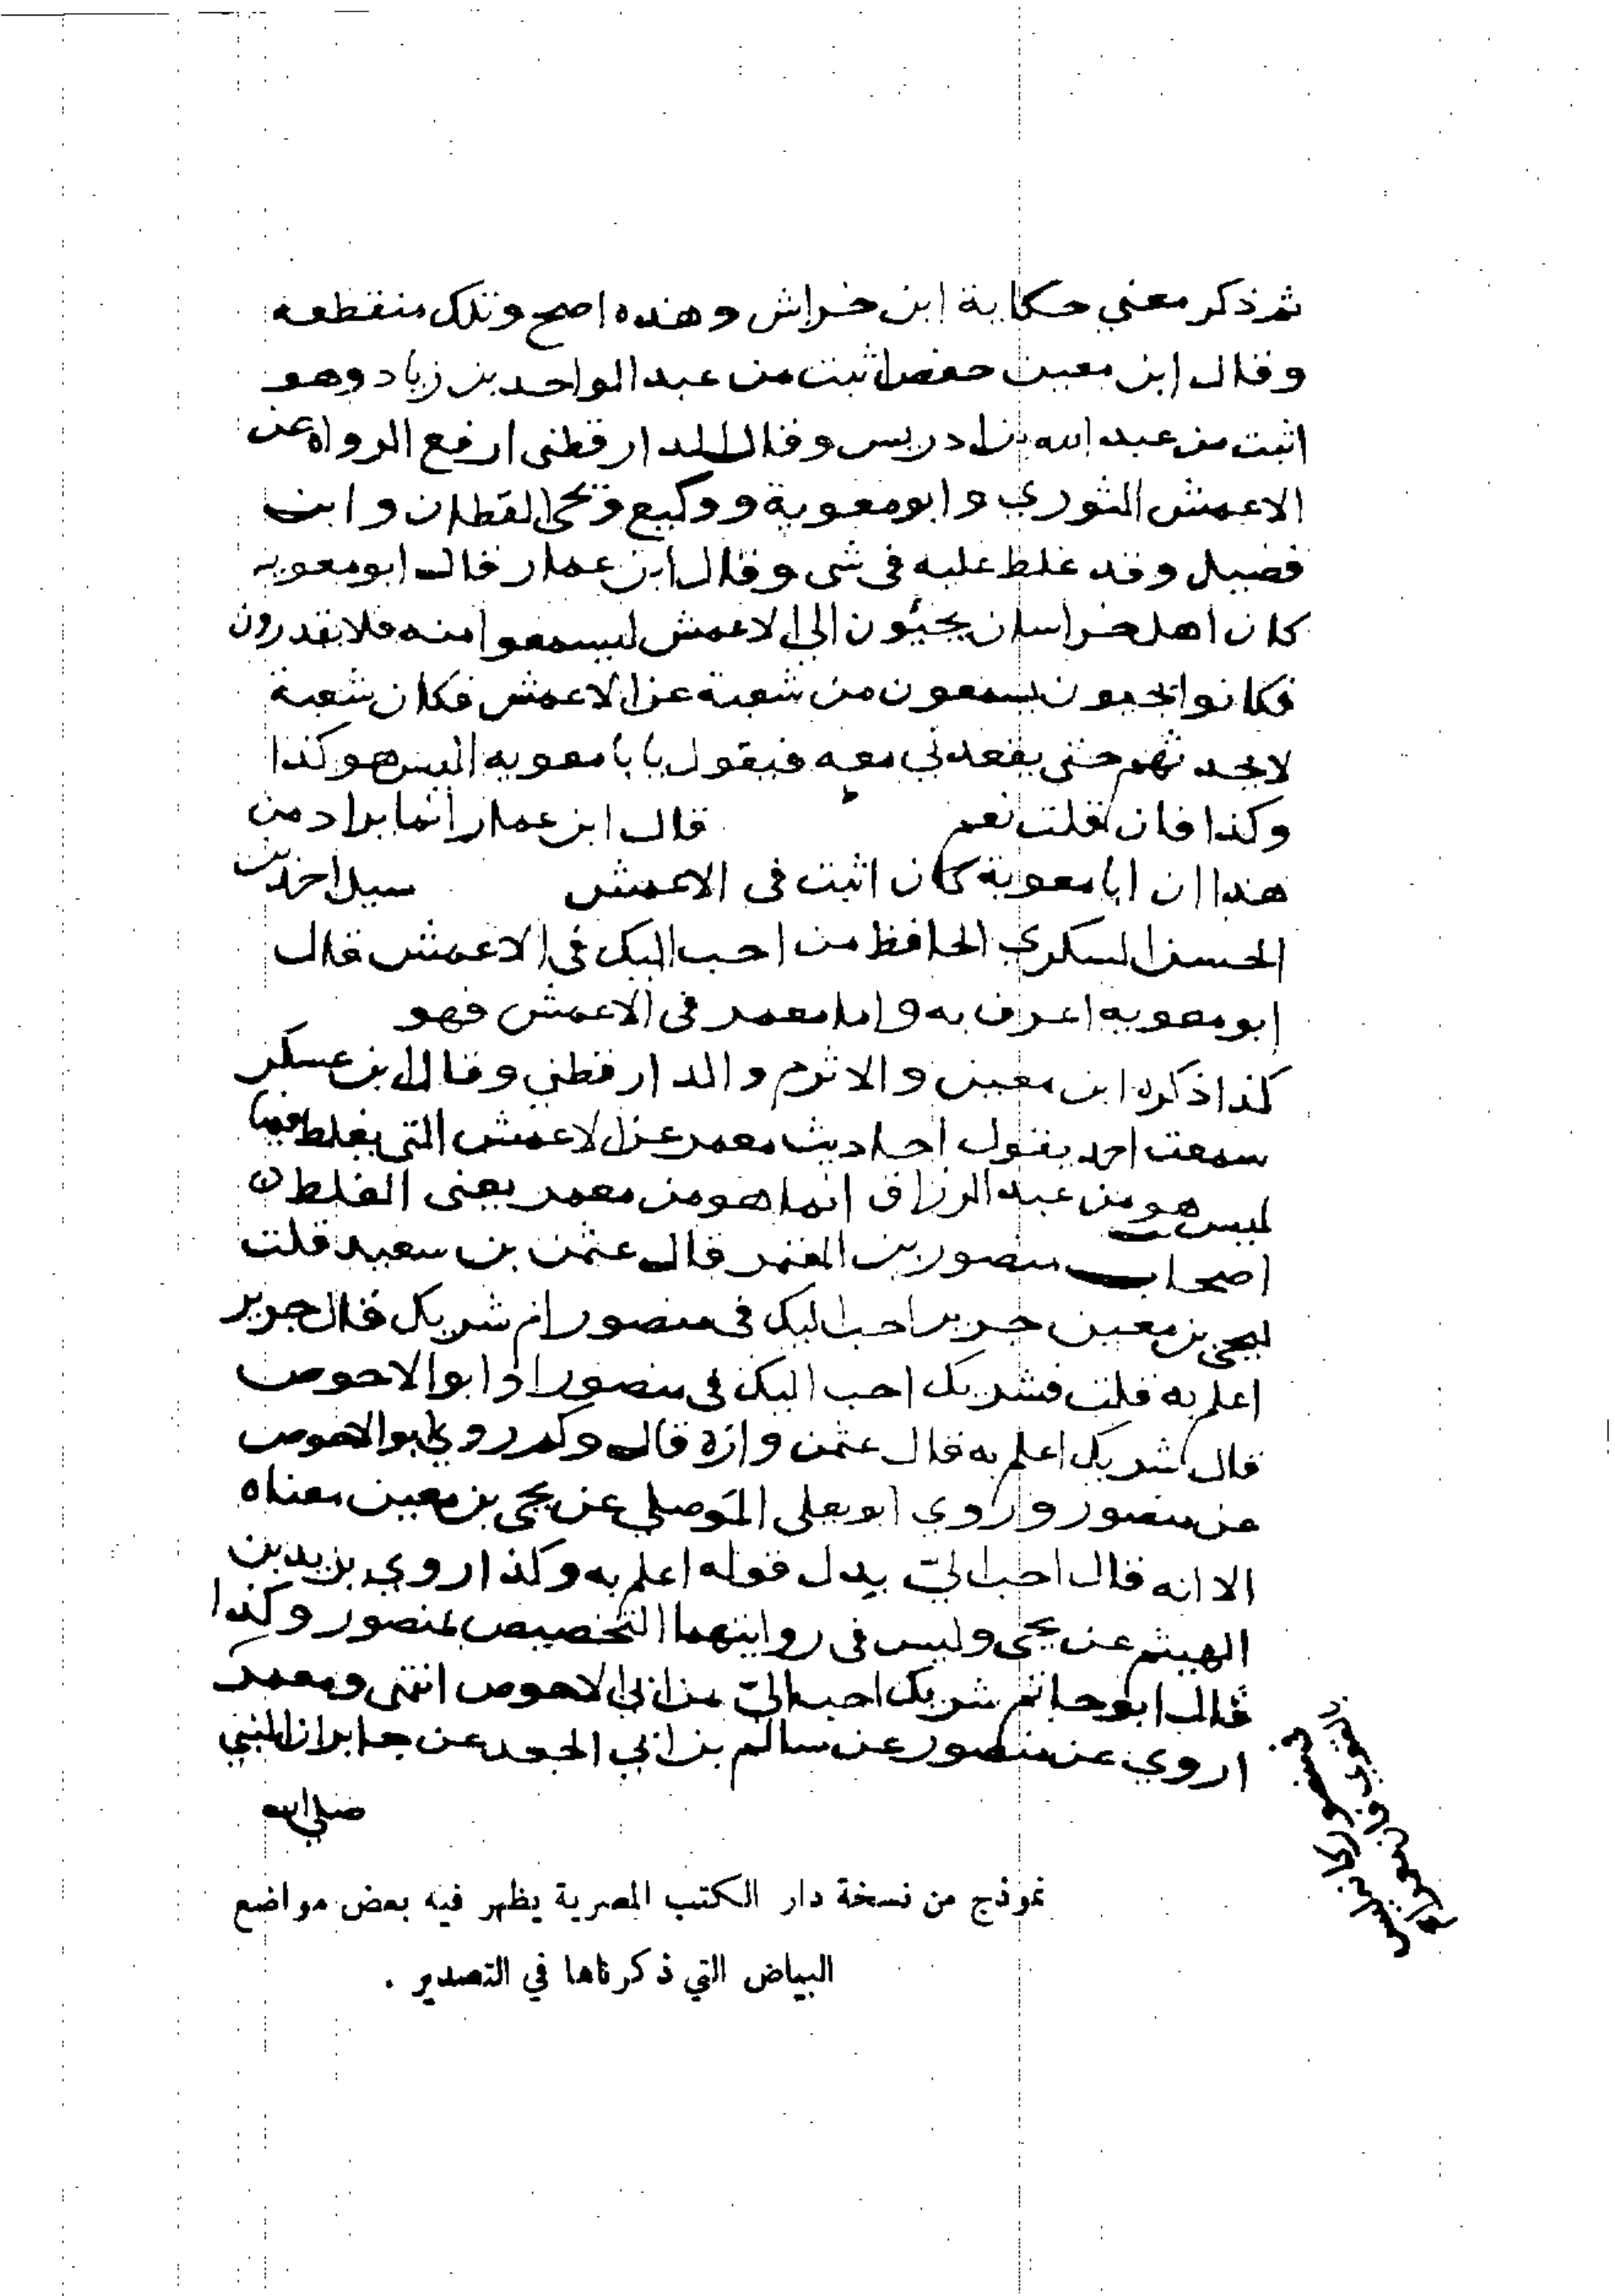 ثم ذكر معني حكاية ابن خراش وهذه اصح وتلك منقطعه
وقال ابن معين حفص اثبت من عبد الواحد بن زياد وهو
اثبت من عبد الله بن ادريس وقال الدارقطني ارفع الرواه عن
الاعمش الثوري وابو معوية ووكيع ويحي القطان وابن
فضيل وقد غلط عليه في شي وقال ابن عمار قال ابو معويه
كان اهل خراسان يجيئون الي الاعمش ليسمعوا منه فلا يقدرون
فكانوا يجيون يسمعون من شعبة عن الاعمش فكان شعبة
لا يحدثهم حتي يقعدني معه فيقول يابا معويه اليس هو كذا
وكذا فان قلت نعم قال ابن عمار انما يراد من
هذا ان ابا معوية كان اثبت في الاعمش سيل احمد بن
الحسن السكري الحافظ من احب اليك في الاعمش قال
ابو معويه اعرف به واما معمر في الاعمش فهو
كذا ذكره ابن معين والاثرم والدارقطني وقال ابن عسكر
سمعت احمد يقول احاديث معمر عن الاعمش التي يغلط فيها
ليس هو من عبد الرزاق انما هو من معمر يعني الغلط
اصحاب منصور بن المعتمر قال عثمن بن سعيد قلت
ليحي بن معين جرير احب اليك في منصور ام شريك قال جرير
اعلم به قلت فشريك احب اليك في منصور او ابو الاحوص
قال شريك اعلم به قال عثمن وازه قال وكم روي ابو الاحوص
عن منصور وروي ابو يعلي الموصلي عن يحي بن معين معناه
الا انه قال احب الي بدل قوله اعلم به وكذا روي يزيد بن
الهيثم عن يحي وليس في روايتهما التخصيص بمنصور وكذا
قال ابو حاتم شريك احب الي من ابي الاحوص انتهى ومعمر
اروي عن منصور عن سالم بن ابي الجعد عن جابر ان النبي
صلي الله
نموذج من نسخة دار الكتب المصرية يظهر فيه بعض مواضع
البياض التي ذكرناها في التصدير .